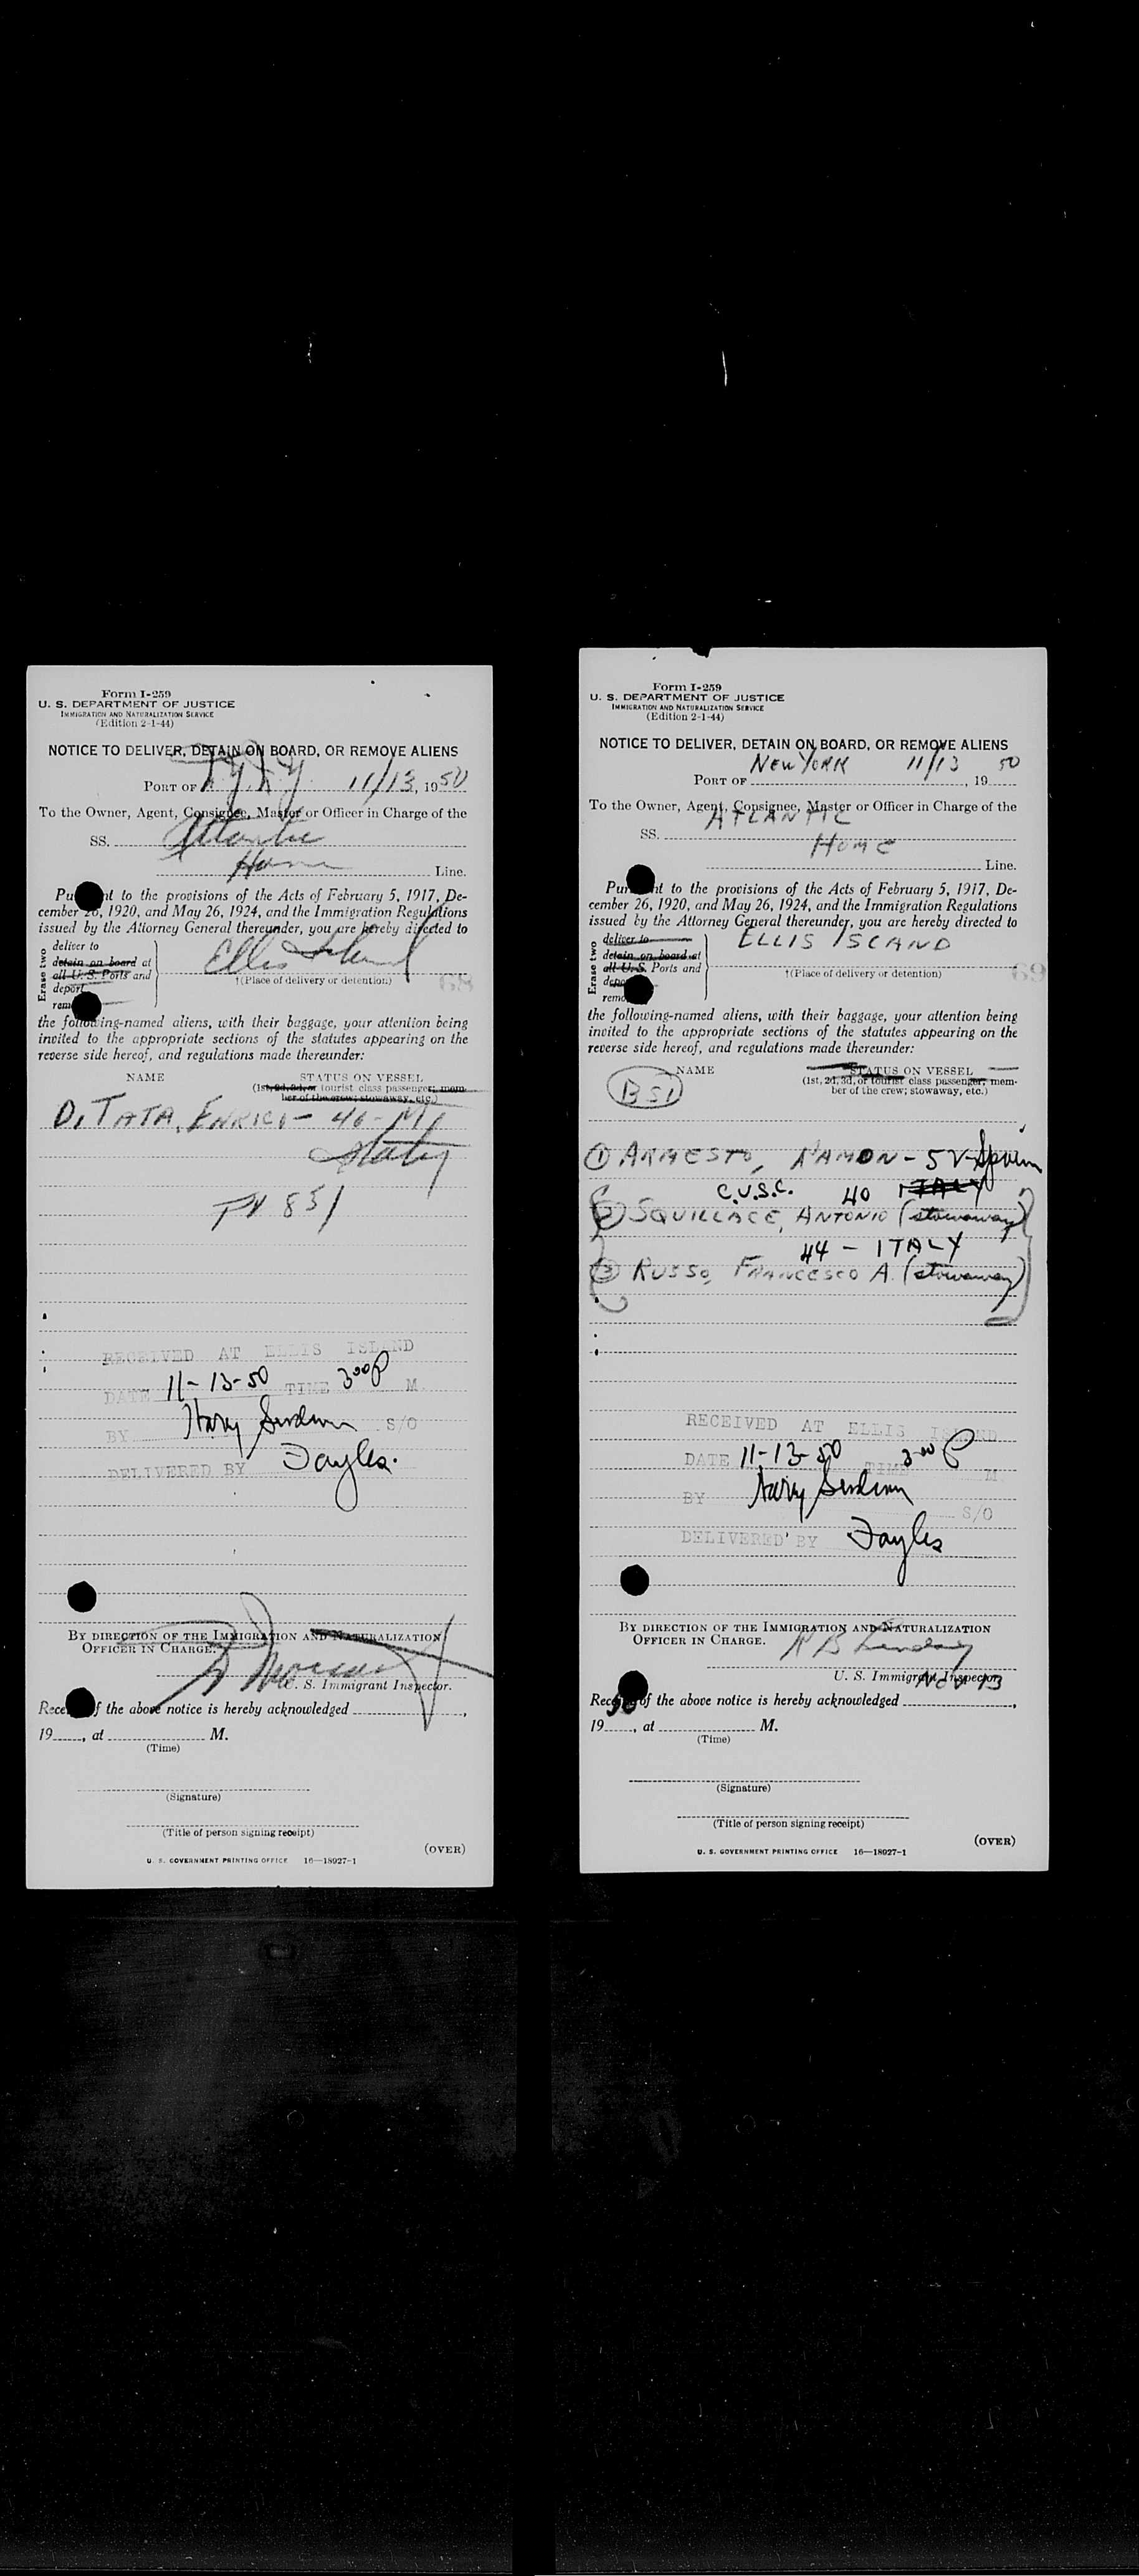 Form I-259
U. S. DEPARTMENT OF JUSTICE
IMMIGRATION AND NATURALIZATION SERVICE
(Edition 2-1-44)
NOTICE TO DELIVER, DETAIN ON BOARD, OR REMOVE ALIENS
PORT OF N.Y.N.Y. 11/13, 1950
To the Owner, Agent, Consignee, Master or Officer in Charge of the
SS. Atlantic
Home Line.
Pu nt to the provisions of the Acts of February 5, 1917, De-
cember 26, 1920, and May 26, 1924, and the Immigration Regulations
issued by the Attorney General thereunder, you are hereby directed to
Erase two
deliver to
detain on board at
all U. S. Ports and
deport
rem
Ellis Island
†(Place of delivery or detention)
68
the following-named aliens, with their baggage, your attention being
invited to the appropriate sections of the statutes appearing on the
reverse side hereof, and regulations made thereunder:
NAME STATUS ON VESSEL
(1st, 2d, 3d, or tourist class passenger; mem-
ber of the crew; stowaway, etc.)
DiTATA, ENRICO - 46 - M
Italy
831
RECEIVED AT ELLIS ISLAND
DATE 11-13-50 TIME 3 00 P M
BY Harry S/O
DELIVERED BY Fayles.
BY DIRECTION OF THE IMMIGRATION AND NATURALIZATION
OFFICER IN CHARGE.
U. S. Immigrant Inspector.
Rece f the above notice is hereby acknowledged ,
19 , at M.
(Time)
(Signature)
(Title of person signing receipt)
(OVER)
U. S. GOVERNMENT PRINTING OFFICE 16—18027-1
Form I-259
U. S. DEPARTMENT OF JUSTICE
IMMIGRATION AND NATURALIZATION SERVICE
(Edition 2-1-44)
NOTICE TO DELIVER, DETAIN ON BOARD, OR REMOVE ALIENS
PORT OF NEW YORK 11/13, 19 50
To the Owner, Agent, Consignee, Master or Officer in Charge of the
SS. ATLANTIC
HOME Line.
Pur nt to the provisions of the Acts of February 5, 1917, De-
cember 26, 1920, and May 26, 1924, and the Immigration Regulations
issued by the Attorney General thereunder, you are hereby directed to
Erase two
deliver to
detain on board at
all U. S. Ports and
depo
remo
ELLIS ISLAND
†(Place of delivery or detention)
69
the following-named aliens, with their baggage, your attention being
invited to the appropriate sections of the statutes appearing on the
reverse side hereof, and regulations made thereunder:
NAME STATUS ON VESSEL
(1st, 2d, 3d, or tourist class passenger; mem-
ber of the crew; stowaway, etc.)
BSI
① ARMESTO, RAMON - 52 - Spain
C.U.S.C. 40 ITALY
② SQUILLACE, ANTONIO (stowaway)
44 - ITALY
③ RUSSO, FRANCESCO A. (stowaway)
RECEIVED AT ELLIS ISLAND
DATE 11-13-50 TIME 3 00 P M
BY Harry S/O
DELIVERED BY Fayles
BY DIRECTION OF THE IMMIGRATION AND NATURALIZATION
OFFICER IN CHARGE.
R B Lindsay
U. S. Immigrant Inspector.
Rece of the above notice is hereby acknowledged Nov 13,
19 50, at M.
(Time)
(Signature)
(Title of person signing receipt)
(OVER)
U. S. GOVERNMENT PRINTING OFFICE 16—18027-1